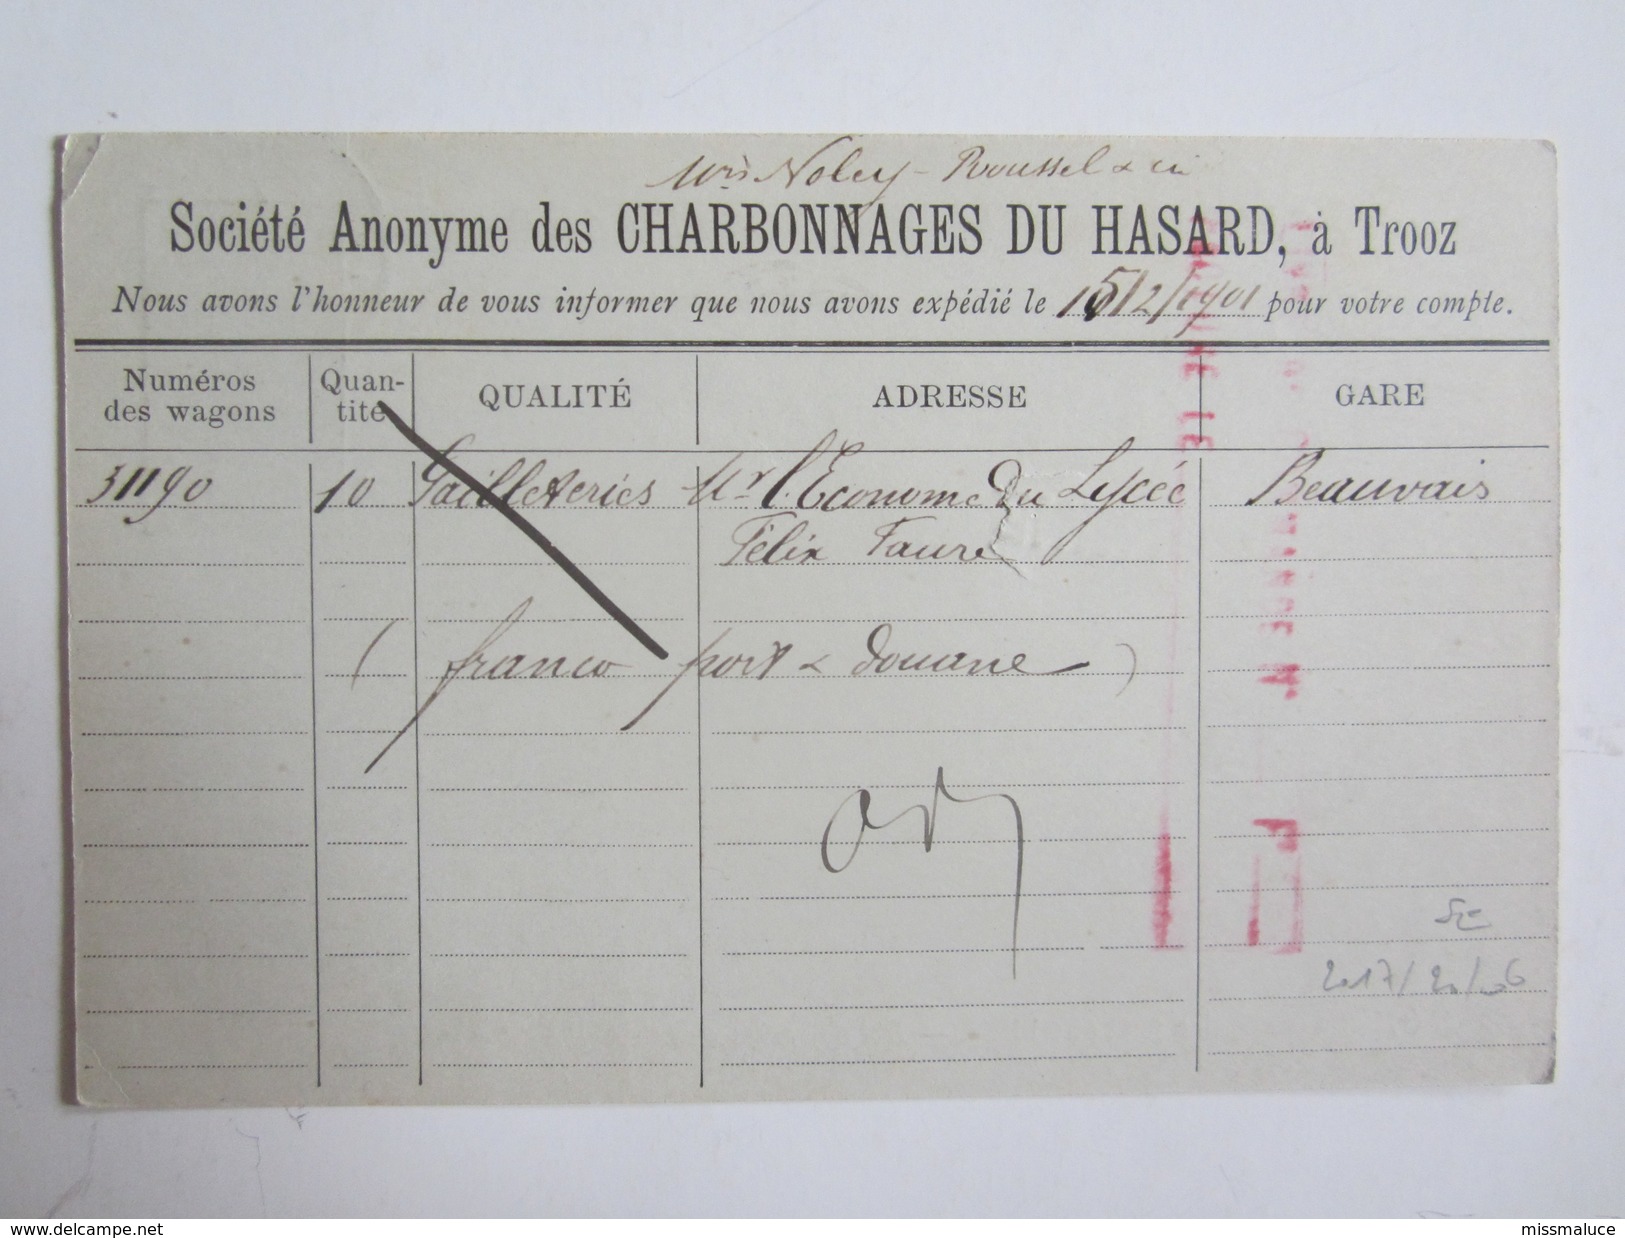 Noley - Roussel &
Société Anonyme des CHARBONNAGES DU HASARD, à Trooz
Nous avons l'honneur de vous informer que nous avons expédié le 15/2/1901 pour votre compte.
Numéros des wagons Quan-tité QUALITÉ ADRESSE GARE
31190 10 Gailleteries Mr l'Econome Du Lycée Beauvais
Félix Faure
( franco port & douane )
2017/20/06
delcampe.net
missmaluce